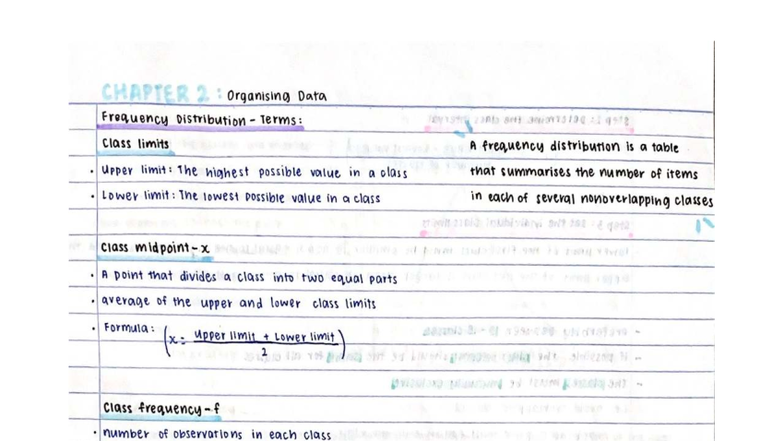 CHAPTER 2: Organising Data
Frequency Distribution - Terms:
Class limits
• Upper limit: The highest possible value in a class
• Lower limit: The lowest possible value in a class
A frequency distribution is a table
that summarises the number of items
in each of several nonoverlapping classes
Class midpoint - x
• A point that divides a class into two equal parts
• average of the upper and lower class limits
• Formula: (x = Upper limit + Lower limit / 2)
Class frequency - f
• number of observations in each class